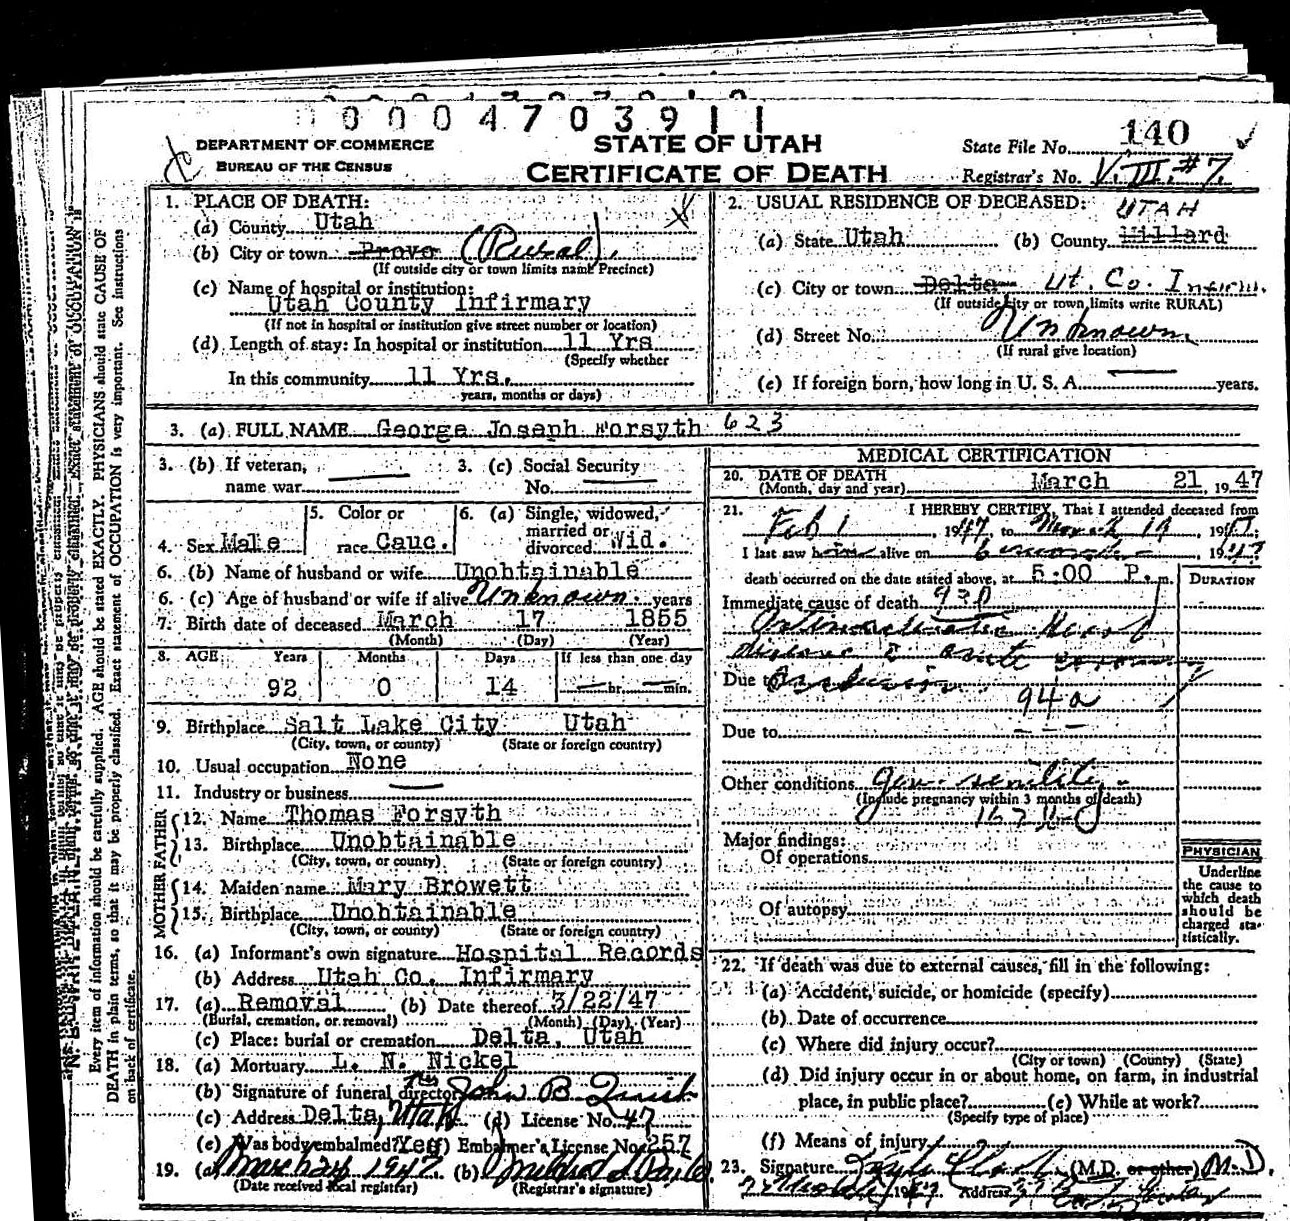 0000470391 1
DEPARTMENT OF COMMERCE
BUREAU OF THE CENSUS
STATE OF UTAH
CERTIFICATE OF DEATH
State File No. 140
Registrar's No. V. III. #7
Every item of information should be carefully supplied. AGE should be stated EXACTLY. PHYSICIANS should state CAUSE OF
DEATH in plain terms, so that it may be properly classified. Exact statement of OCCUPATION is very important. See instructions
on back of certificate.
1. PLACE OF DEATH:
(a) County Utah
(b) City or town Provo (Rural).
(If outside city or town limits name Precinct)
(c) Name of hospital or institution:
Utah County Infirmary
(If not in hospital or institution give street number or location)
(d) Length of stay: In hospital or institution 11 Yrs
(Specify whether
In this community 11 Yrs.
years, months or days)
2. USUAL RESIDENCE OF DECEASED:
UTAH
(a) State Utah (b) County Millard
(c) City or town Delta Ut. Co. Infirm.
(If outside city or town limits write RURAL)
(d) Street No. Unknown
(If rural give location)
(e) If foreign born, how long in U. S. A. years.
3. (a) FULL NAME George Joseph Forsyth 623
3. (b) If veteran, name war
3. (c) Social Security No.
4. Sex Male
5. Color or race Cauc.
6. (a) Single, widowed, married or divorced Wid.
6. (b) Name of husband or wife Unobtainable
6. (c) Age of husband or wife if alive Unknown. years
7. Birth date of deceased March 17 1855
(Month) (Day) (Year)
8. AGE Years Months Days If less than one day
92 0 14 hr. min.
9. Birthplace Salt Lake City Utah
(City, town, or county) (State or foreign country)
10. Usual occupation None
11. Industry or business
FATHER
12. Name Thomas Forsyth
13. Birthplace Unobtainable
(City, town, or county) (State or foreign country)
MOTHER
14. Maiden name Mary Browett
15. Birthplace Unobtainable
(City, town, or county) (State or foreign country)
16. (a) Informant's own signature Hospital Records
(b) Address Utah Co. Infirmary
17. (a) Removal (b) Date thereof 3/22/47
(Burial, cremation, or removal) (Month) (Day) (Year)
(c) Place: burial or cremation Delta, Utah
18. (a) Mortuary L. N. Nickel
(b) Signature of funeral director John B
(c) Address Delta, Utah (d) License No. 47
(e) Was body embalmed? Yes (f) Embalmer's License No. 257
19. (a) 1947 (b) Mildred
(Date received local registrar) (Registrar's signature)
MEDICAL CERTIFICATION
20. DATE OF DEATH
(Month, day and year) March 21, 1947
21. I HEREBY CERTIFY, That I attended deceased from
Feb 1, 1947 to March 19, 1947
I last saw him alive on 1947
death occurred on the date stated above, at 5:00 P. m.
DURATION
Immediate cause of death 93D
Heart
disease acute coronary
Due to
94a
Due to
Other conditions gen. senility
(Include pregnancy within 3 months of death)
162
Major findings:
Of operations
Of autopsy
PHYSICIAN
Underline
the cause to
which death
should be
charged sta-
tistically.
22. If death was due to external causes, fill in the following:
(a) Accident, suicide, or homicide (specify)
(b) Date of occurrence
(c) Where did injury occur?
(City or town) (County) (State)
(d) Did injury occur in or about home, on farm, in industrial
place, in public place? (e) While at work?
(Specify type of place)
(f) Means of injury
23. Signature (M.D. or other) M.D.
1947 Address